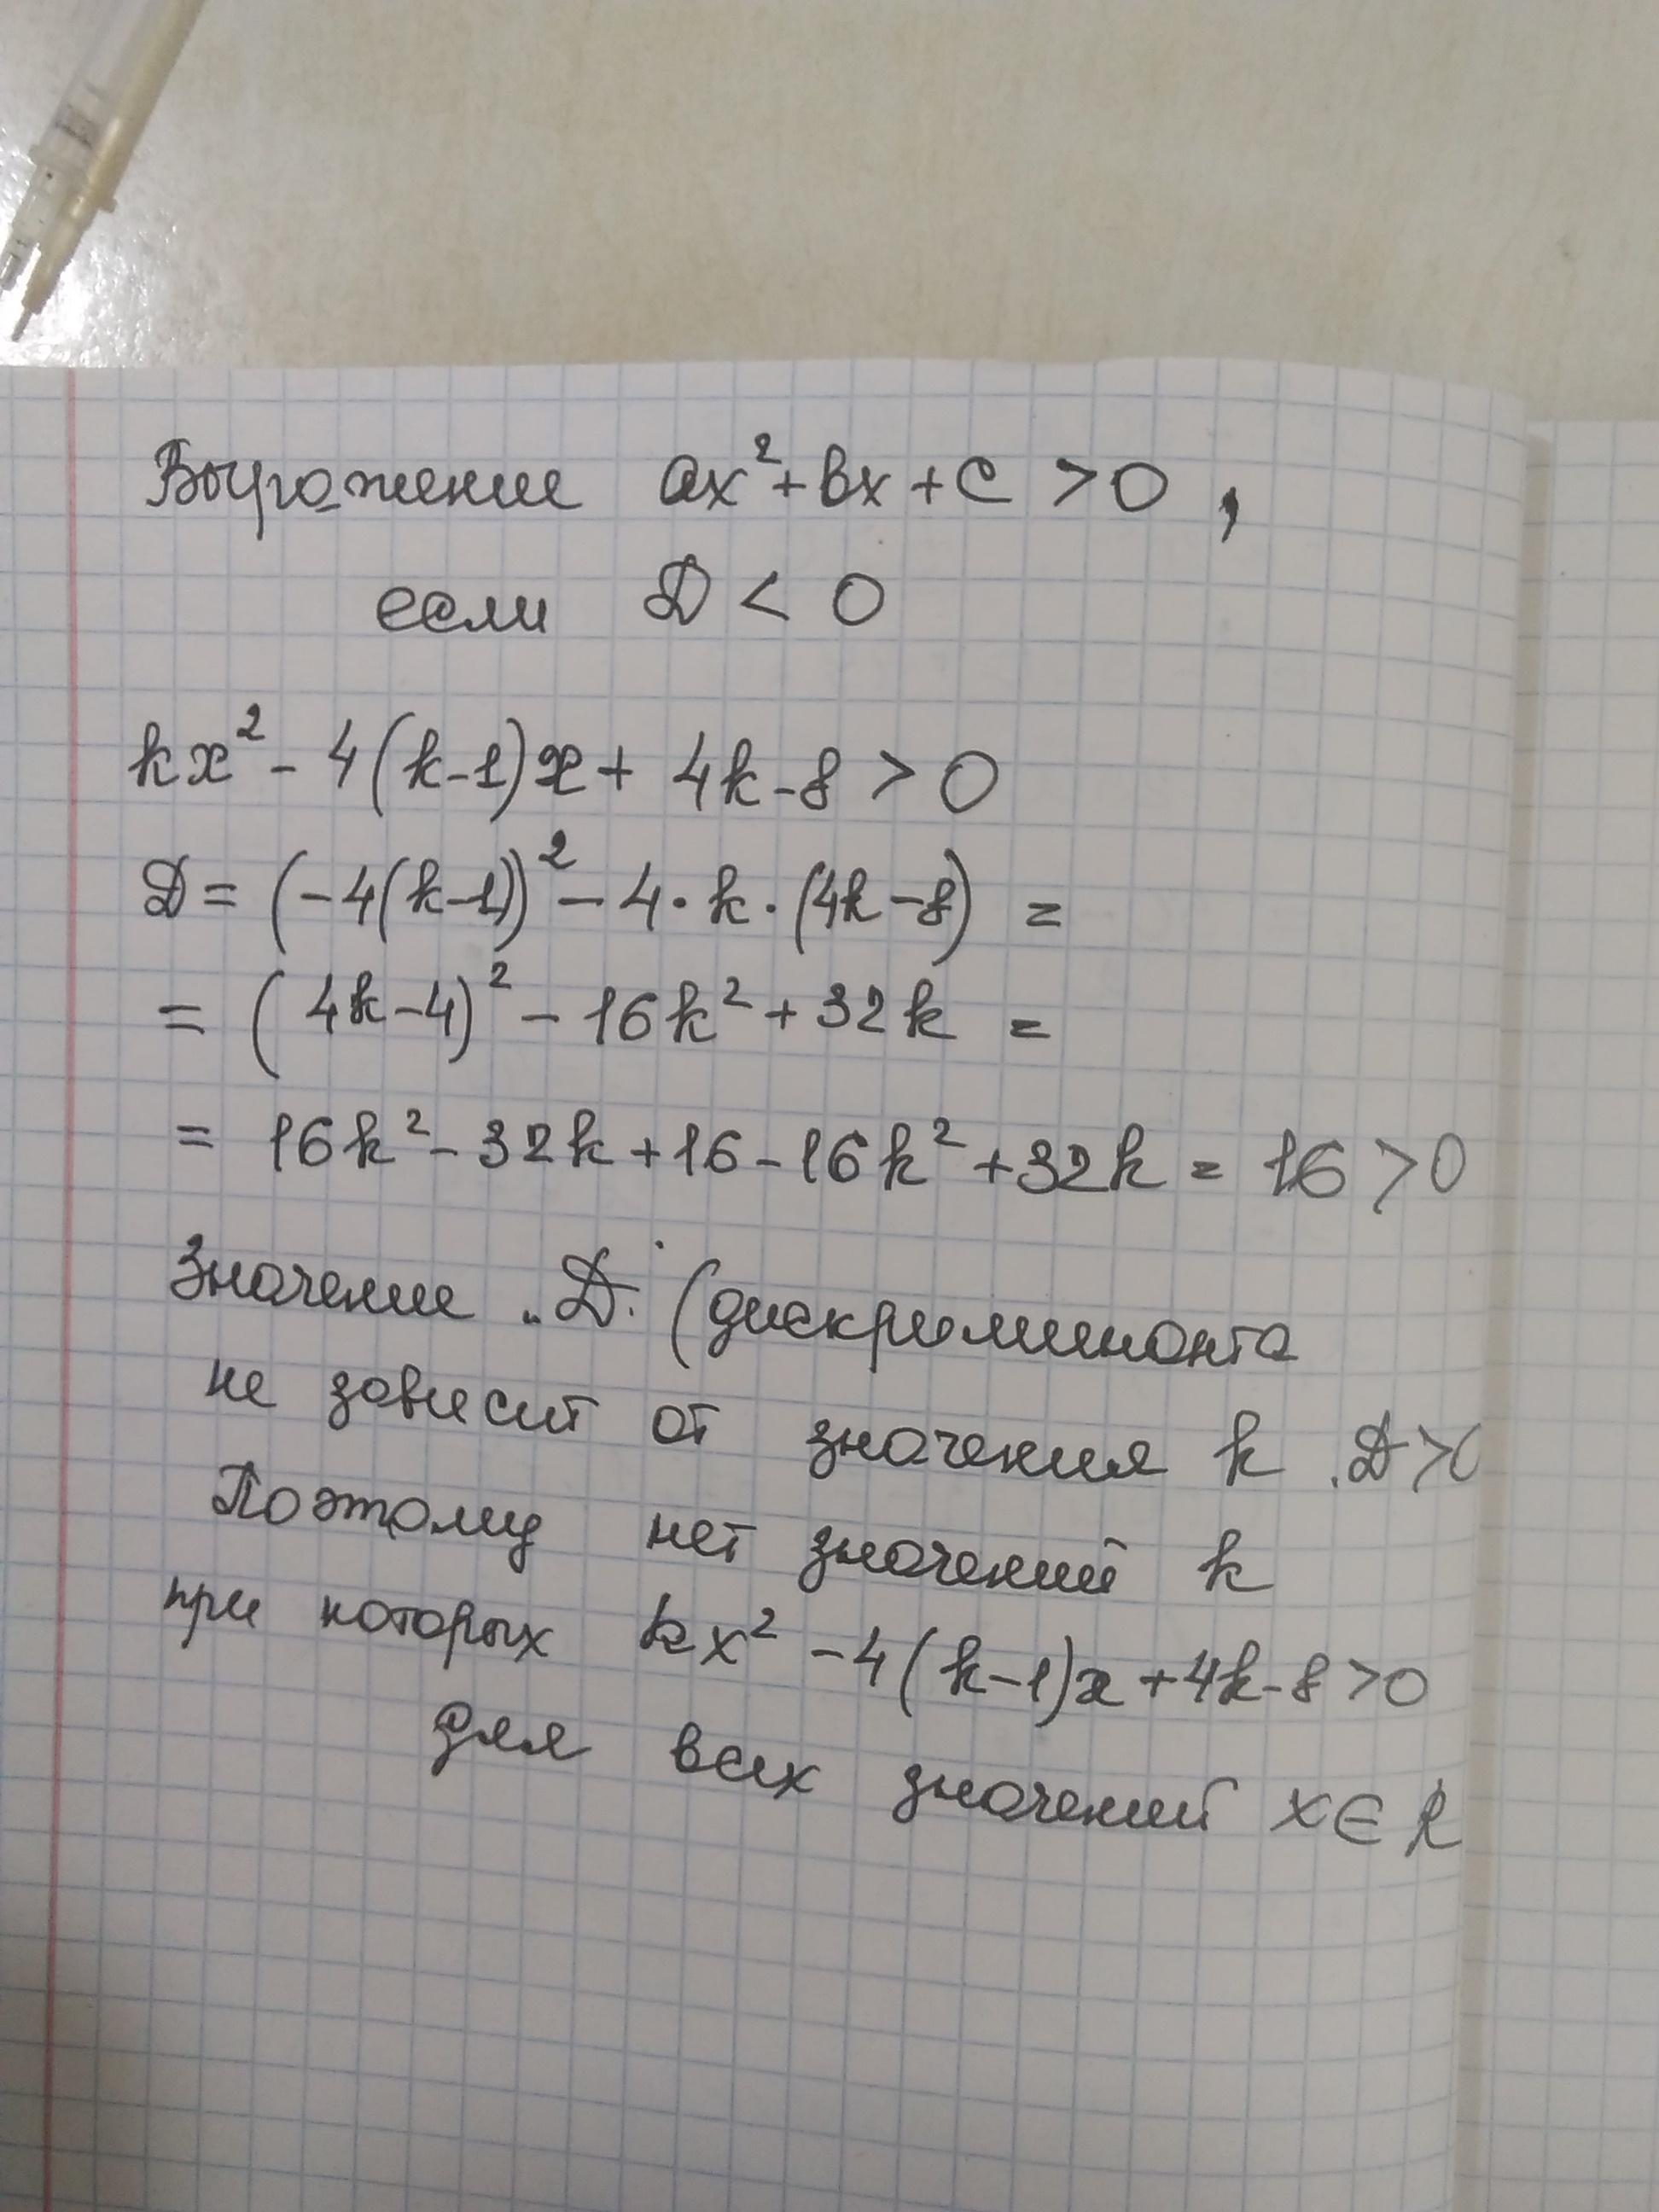 Выражение ax²+bx+c >0,
если D < 0
kx² - 4(k-1)x + 4k-8 > 0
D = (-4(k-1))² - 4·k·(4k-8) =
= (4k-4)² - 16k² + 32k =
= 16k² - 32k + 16 - 16k² + 32k = 16 > 0
Значение „D" (дискриминанта
не зависит от значения k. D>0
Поэтому нет значений k
при которых kx² - 4(k-1)x + 4k-8 >0
для всех значений x∈R